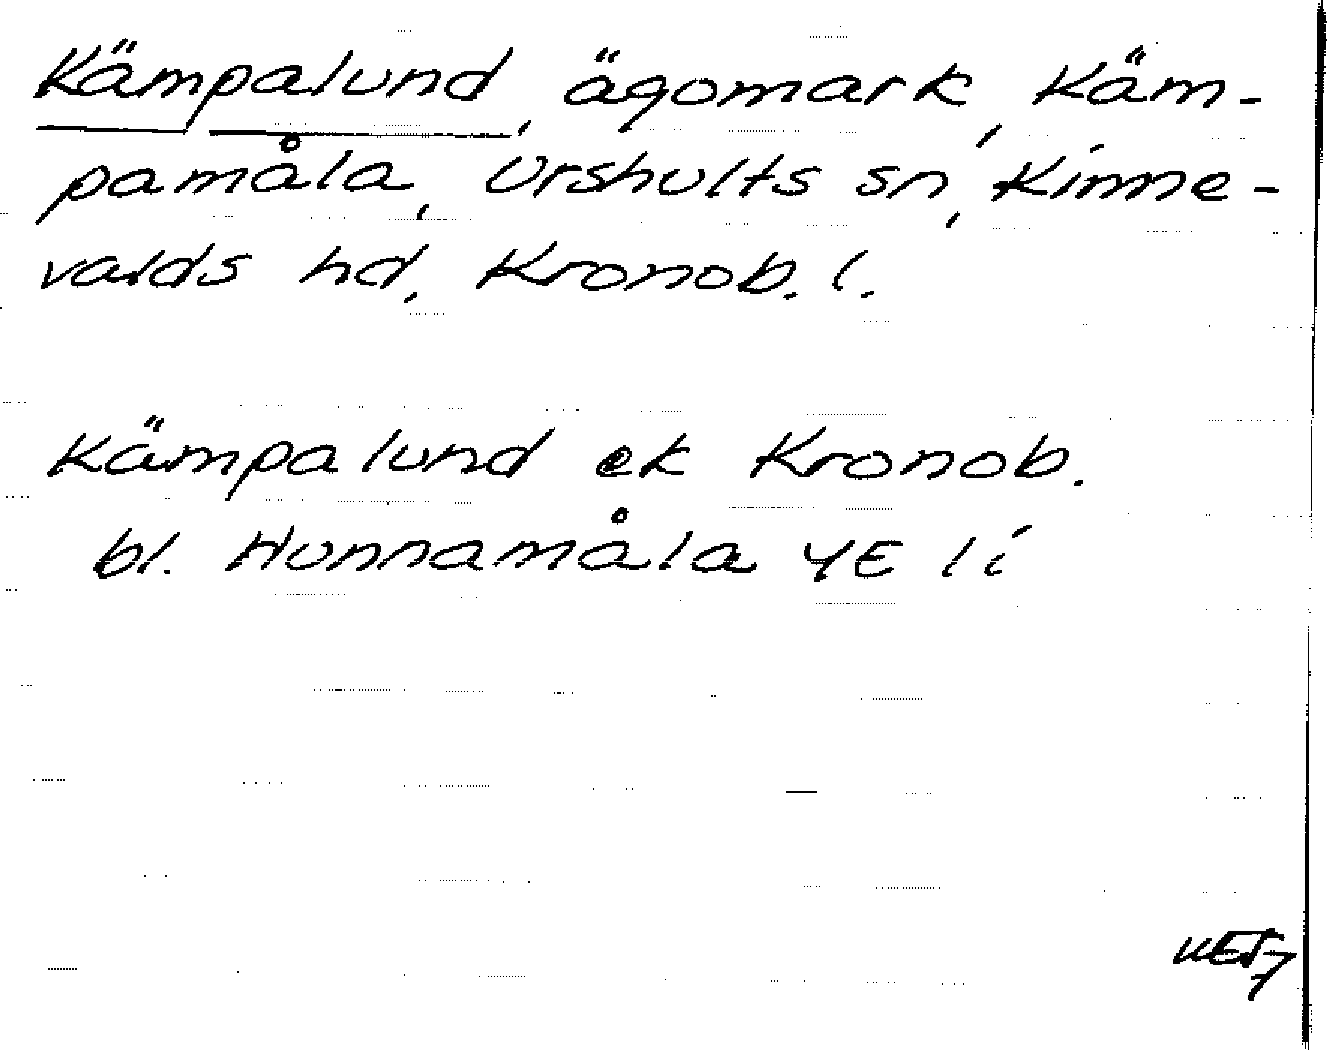 Kämpalund, ägomark, Käm-
pamåla, Urshults sn, Kinne-
valds hd, Kronob. l.
Kämpalund ek Kronob.
bl. Hunnamåla 4E 1i